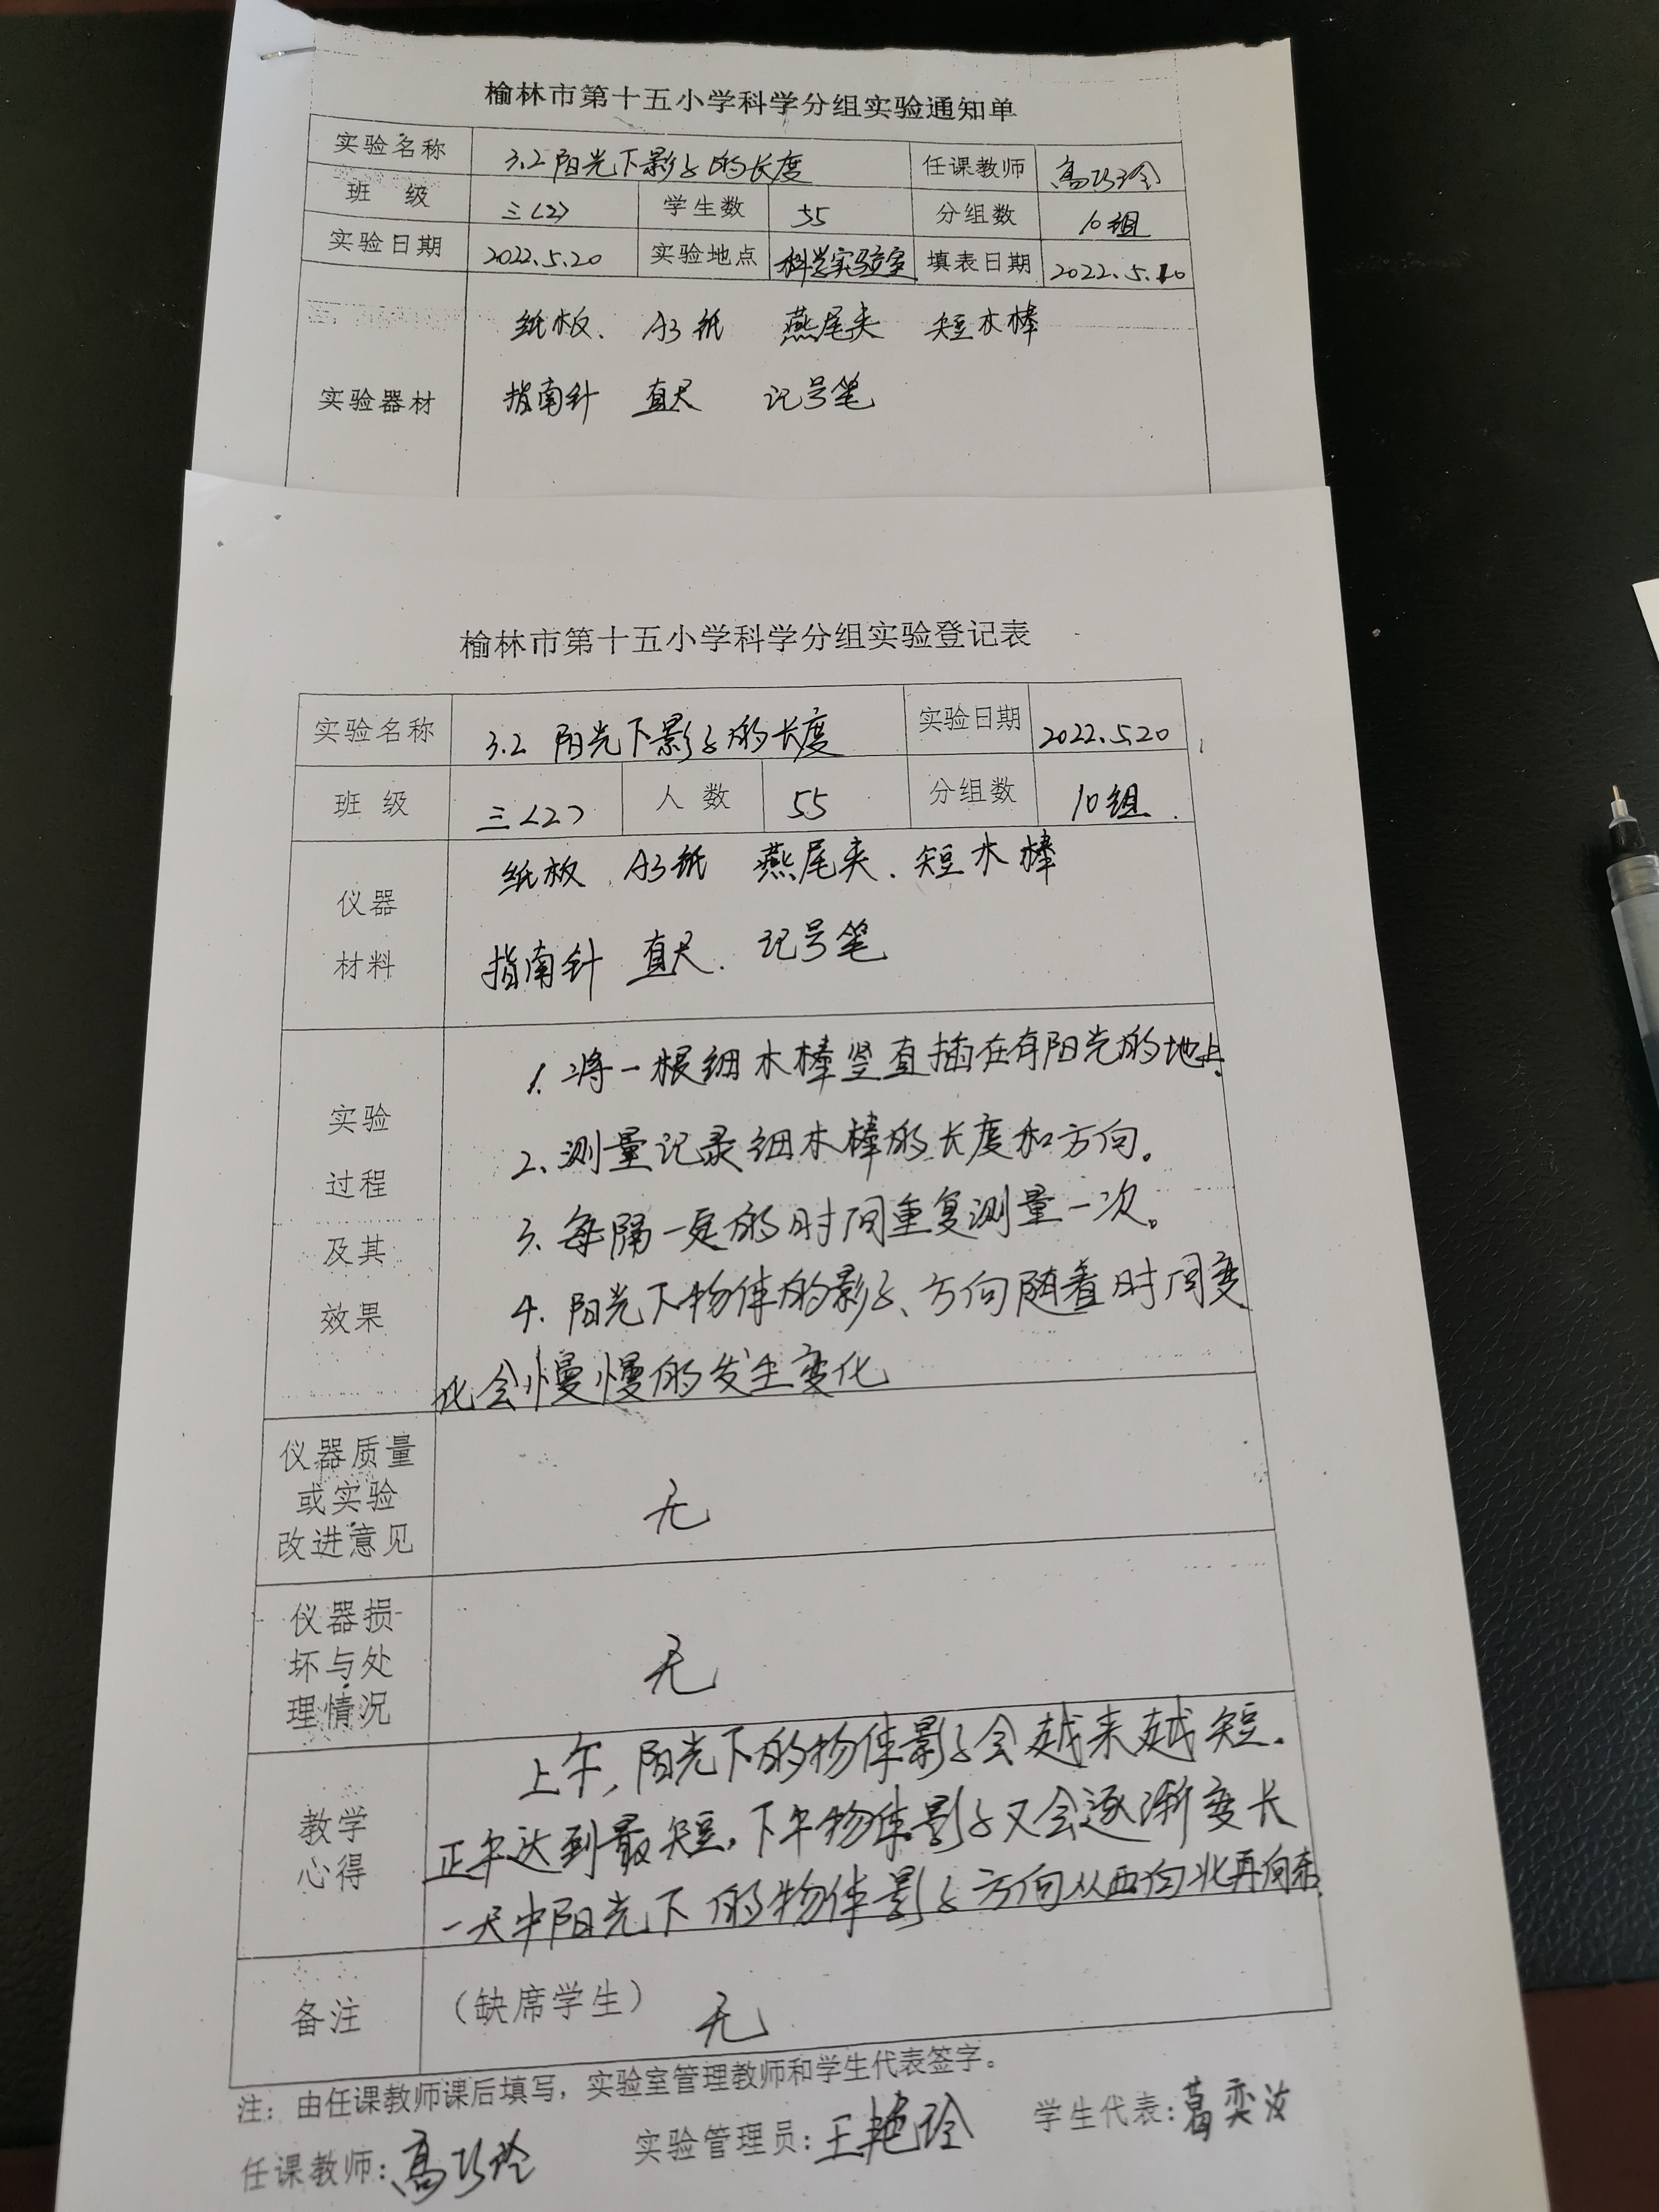 榆林市第十五小学科学分组实验通知单
实验名称 3.2 阳光下影子的长度 任课教师 高巧玲
班 级 三<2> 学生数 55 分组数 10组
实验日期 2022.5.20 实验地点 科学实验室 填表日期 2022.5.10
纸板、 A3纸 燕尾夹 短木棒
实验器材 指南针 直尺 记号笔
榆林市第十五小学科学分组实验登记表
实验名称 3.2 阳光下影子的长度 实验日期 2022.5.20
班 级 三<2> 人 数 55 分组数 10组.
纸板、A3纸 燕尾夹、短木棒
仪器
材料 指南针 直尺、记号笔
1. 将一根细木棒竖直插在有阳光的地上.
实验
2、测量记录细木棒的长度和方向。
过程
3、每隔一定的时间重复测量一次。
及其
4. 阳光下物体的影子、方向随着时间变
效果
化会慢慢的发生变化
仪器质量
或实验 无
改进意见
仪器损
坏与处 无
理情况
上午,阳光下的物体影子会越来越短.
教学
正午达到最短.下午物体影子又会逐渐变长
心得
一天中阳光下的物体影子方向从西向北再向东.
备注 (缺席学生) 无
注:由任课教师课后填写,实验室管理教师和学生代表签字。
任课教师:高巧玲 实验管理员:王艳玲 学生代表:葛奕汝